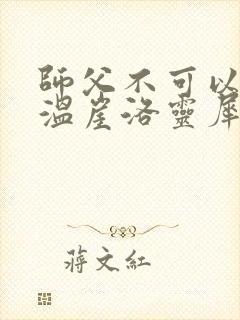 師父不可以
溫崖洛靈犀
蔣文紅